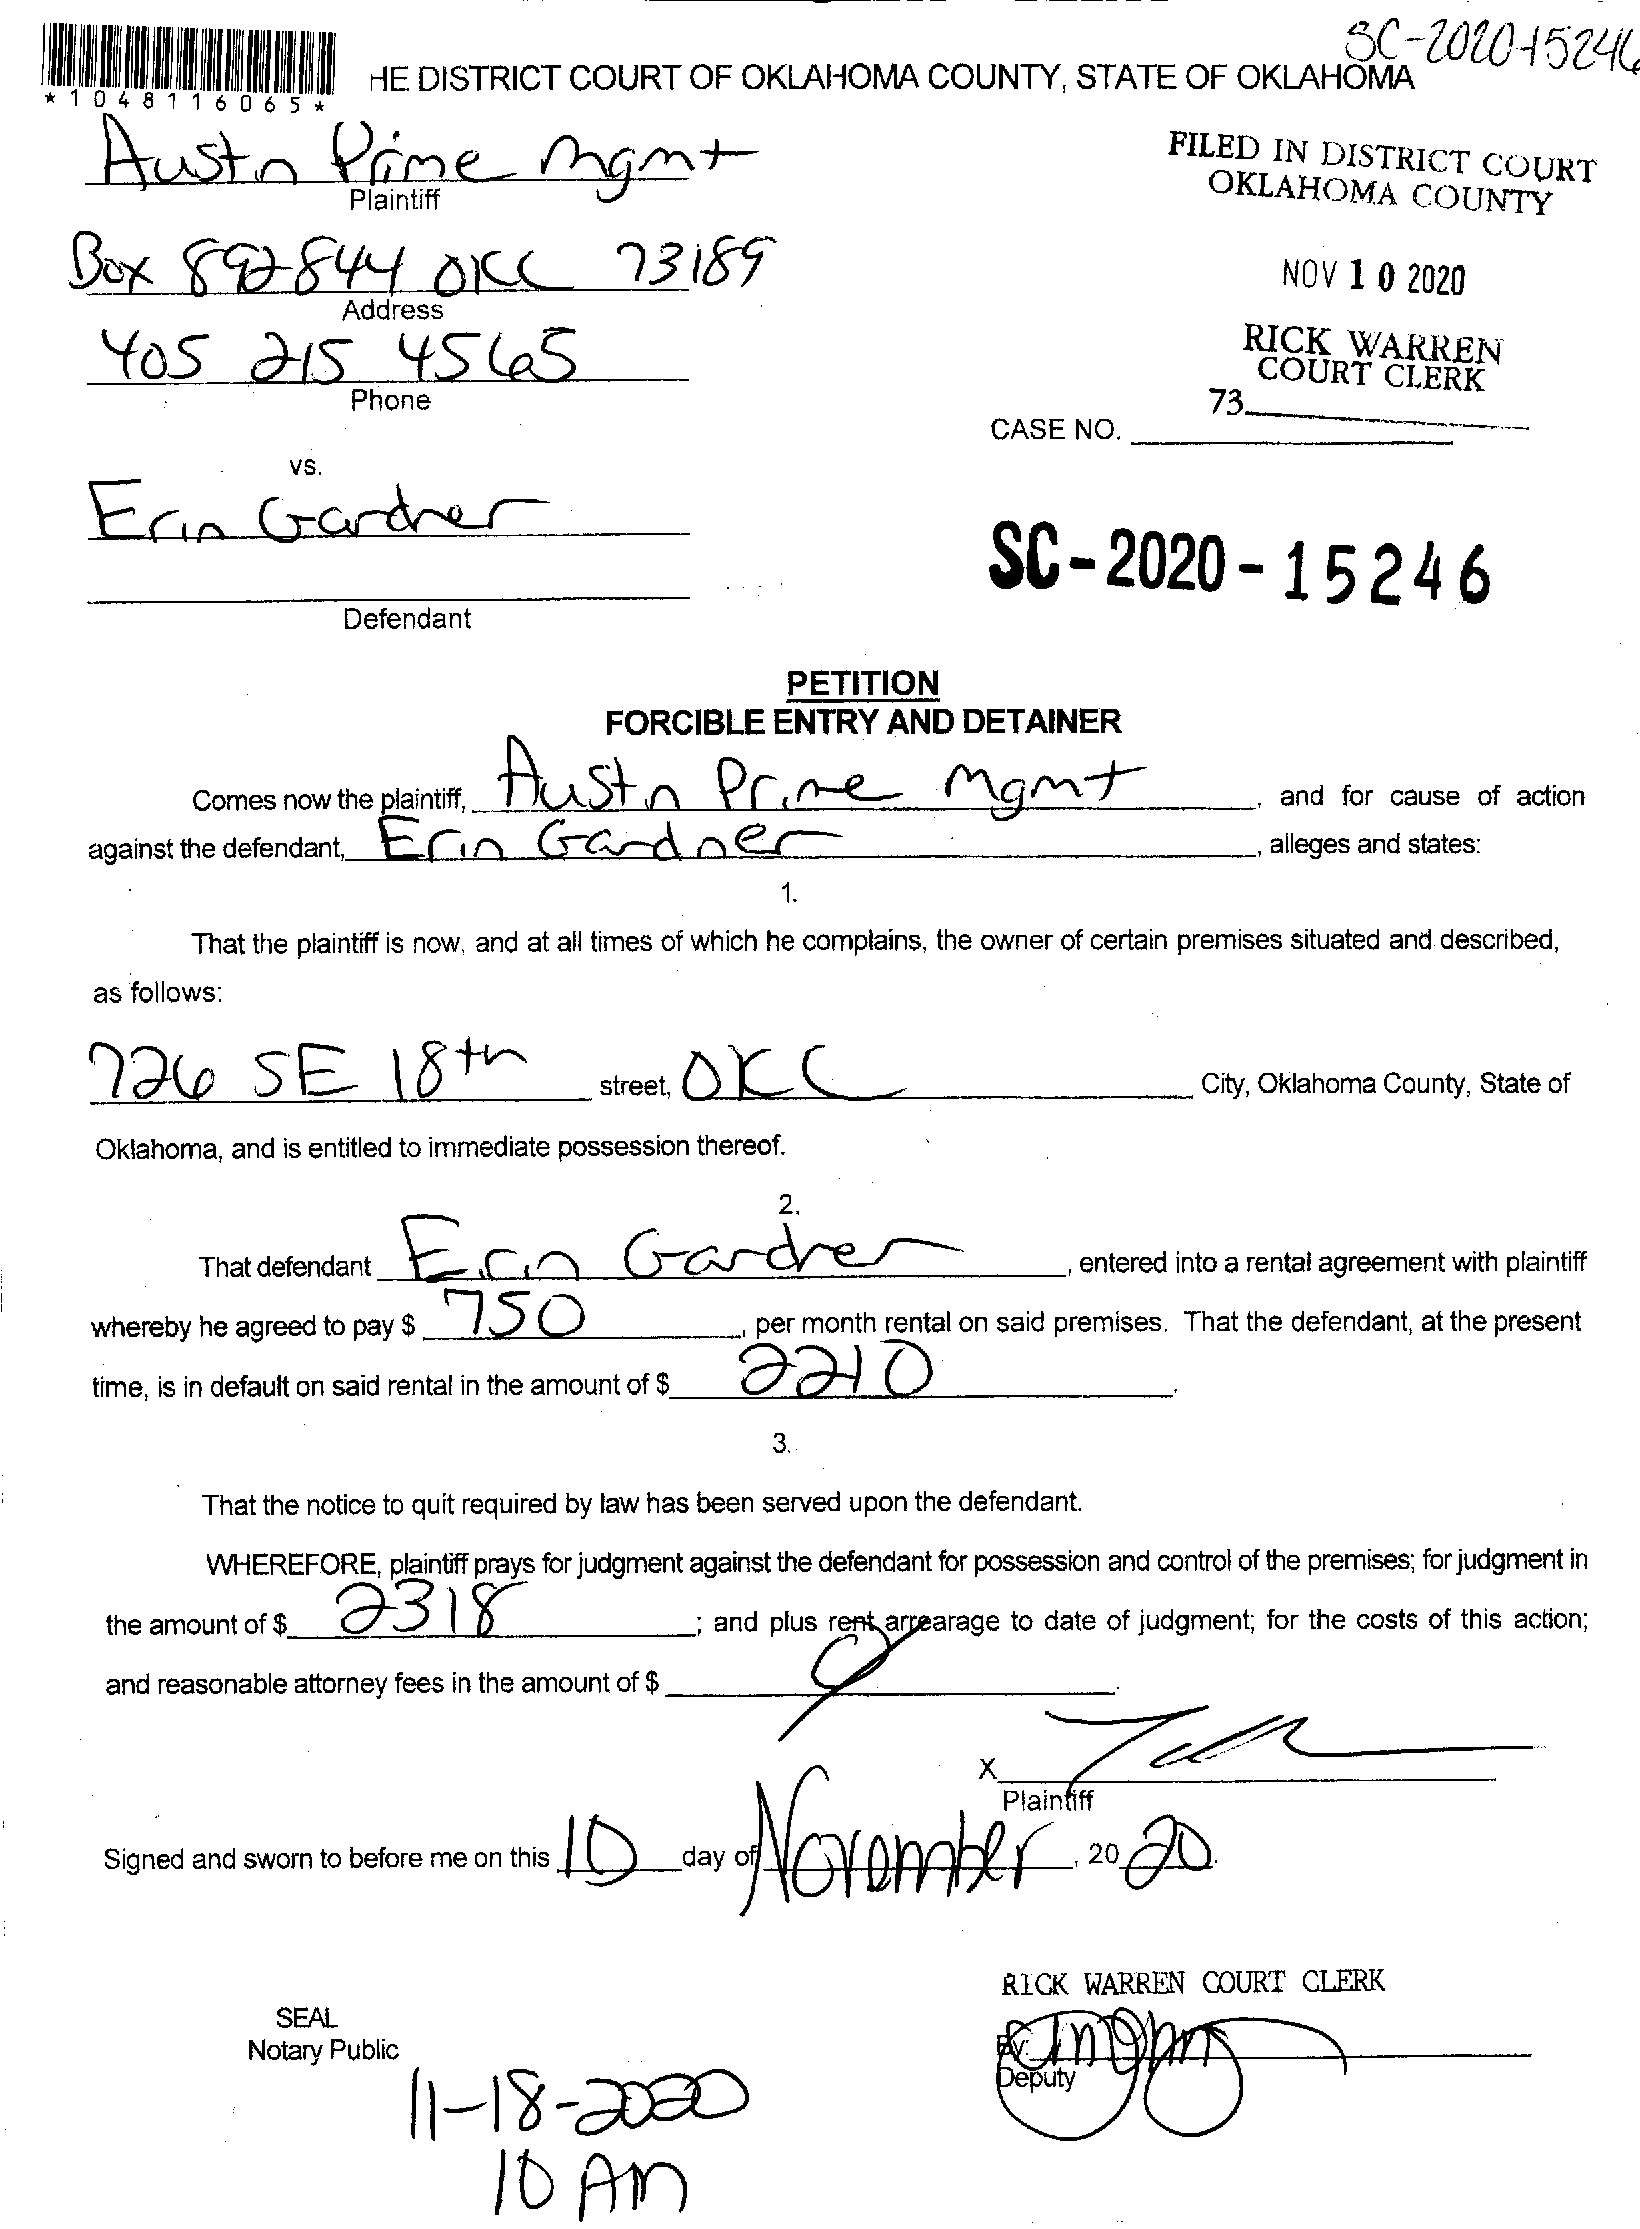 SC-2020-15246
*1048116065*
HE DISTRICT COURT OF OKLAHOMA COUNTY, STATE OF OKLAHOMA
Austin Prime Mgmt
Plaintiff
FILED IN DISTRICT COURT
OKLAHOMA COUNTY
Box 892844 OKC 73189
Address
NOV 10 2020
405 215 4565
Phone
RICK WARREN
COURT CLERK
73
CASE NO.
vs.
Erin Gardner
Defendant
SC-2020-15246
PETITION
FORCIBLE ENTRY AND DETAINER
Comes now the plaintiff, Austin Prime Mgmt, and for cause of action
against the defendant, Erin Gardner, alleges and states:
1.
That the plaintiff is now, and at all times of which he complains, the owner of certain premises situated and described,
as follows:
726 SE 18th street, OKC City, Oklahoma County, State of
Oklahoma, and is entitled to immediate possession thereof.
2.
That defendant Erin Gardner, entered into a rental agreement with plaintiff
whereby he agreed to pay $ 750, per month rental on said premises. That the defendant, at the present
time, is in default on said rental in the amount of $ 2210.
3.
That the notice to quit required by law has been served upon the defendant.
WHEREFORE, plaintiff prays for judgment against the defendant for possession and control of the premises; for judgment in
the amount of $ 2318; and plus rent arrearage to date of judgment; for the costs of this action;
and reasonable attorney fees in the amount of $
X
Plaintiff
Signed and sworn to before me on this 10 day of November, 2020.
RICK WARREN COURT CLERK
SEAL
Notary Public
By:
Deputy
11-18-2020
10 AM